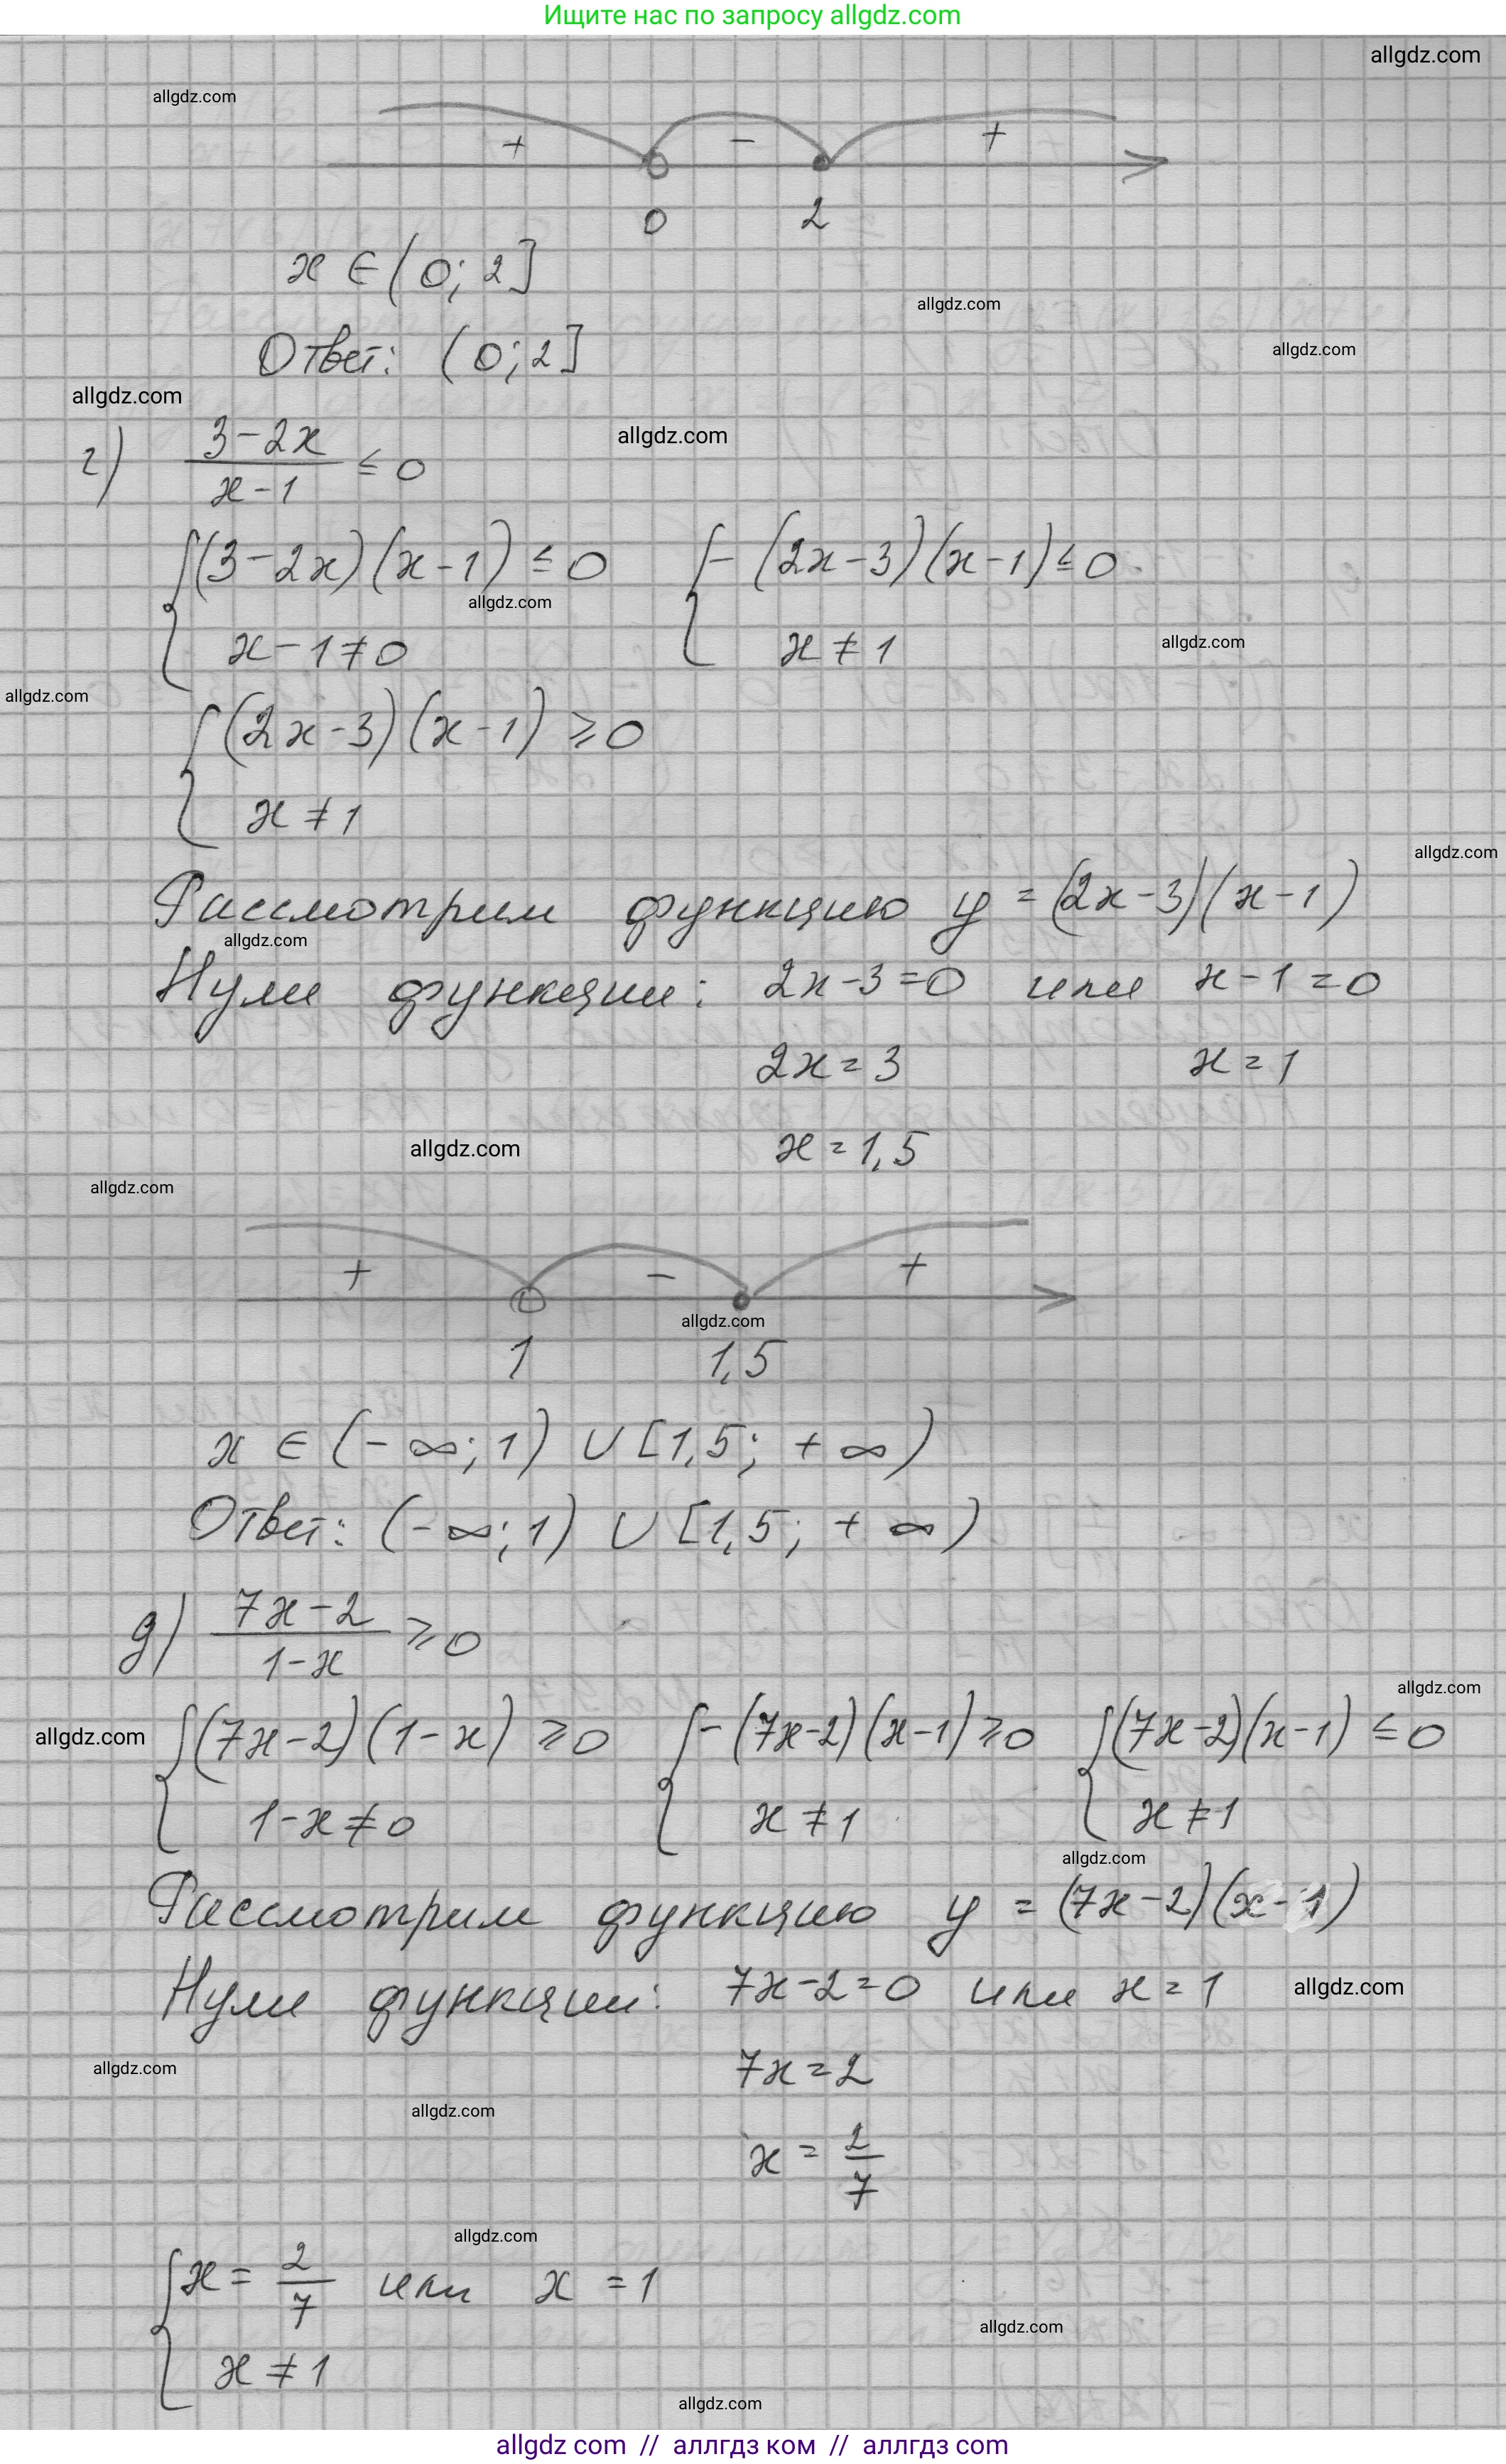 Ищите нас по запросу allgdz.com
allgdz.com
allgdz.com
+ - +
0 2
x ∈ (0; 2]
allgdz.com
Ответ: (0; 2]
allgdz.com
allgdz.com
allgdz.com
г) (3-2x)/(x-1) ≤ 0
{ (3-2x)(x-1) ≤ 0 { -(2x-3)(x-1) ≤ 0
allgdz.com
x-1≠0 x≠1
allgdz.com
allgdz.com
{ (2x-3)(x-1) ≥ 0
x≠1
allgdz.com
Рассмотрим функцию y = (2x-3)(x-1)
allgdz.com
Нули функции: 2x-3=0 или x-1=0
2x=3 x=1
allgdz.com x=1,5
allgdz.com
+ - +
allgdz.com
1 1,5
x ∈ (-∞; 1) ∪ [1,5; +∞)
Ответ: (-∞; 1) ∪ [1,5; +∞)
д) (7x-2)/(1-x) ≥ 0
allgdz.com
allgdz.com
{ (7x-2)(1-x) ≥ 0 { -(7x-2)(x-1) ≥ 0 { (7x-2)(x-1) ≤ 0
1-x≠0 x≠1 x≠1
allgdz.com
Рассмотрим функцию y = (7x-2)(x-1)
Нули функции: 7x-2=0 или x=1 allgdz.com
allgdz.com 7x=2
allgdz.com
x = 2/7
allgdz.com
{ x = 2/7 или x = 1
allgdz.com
x≠1
allgdz.com
allgdz com // аллгдз ком // аллгдз com